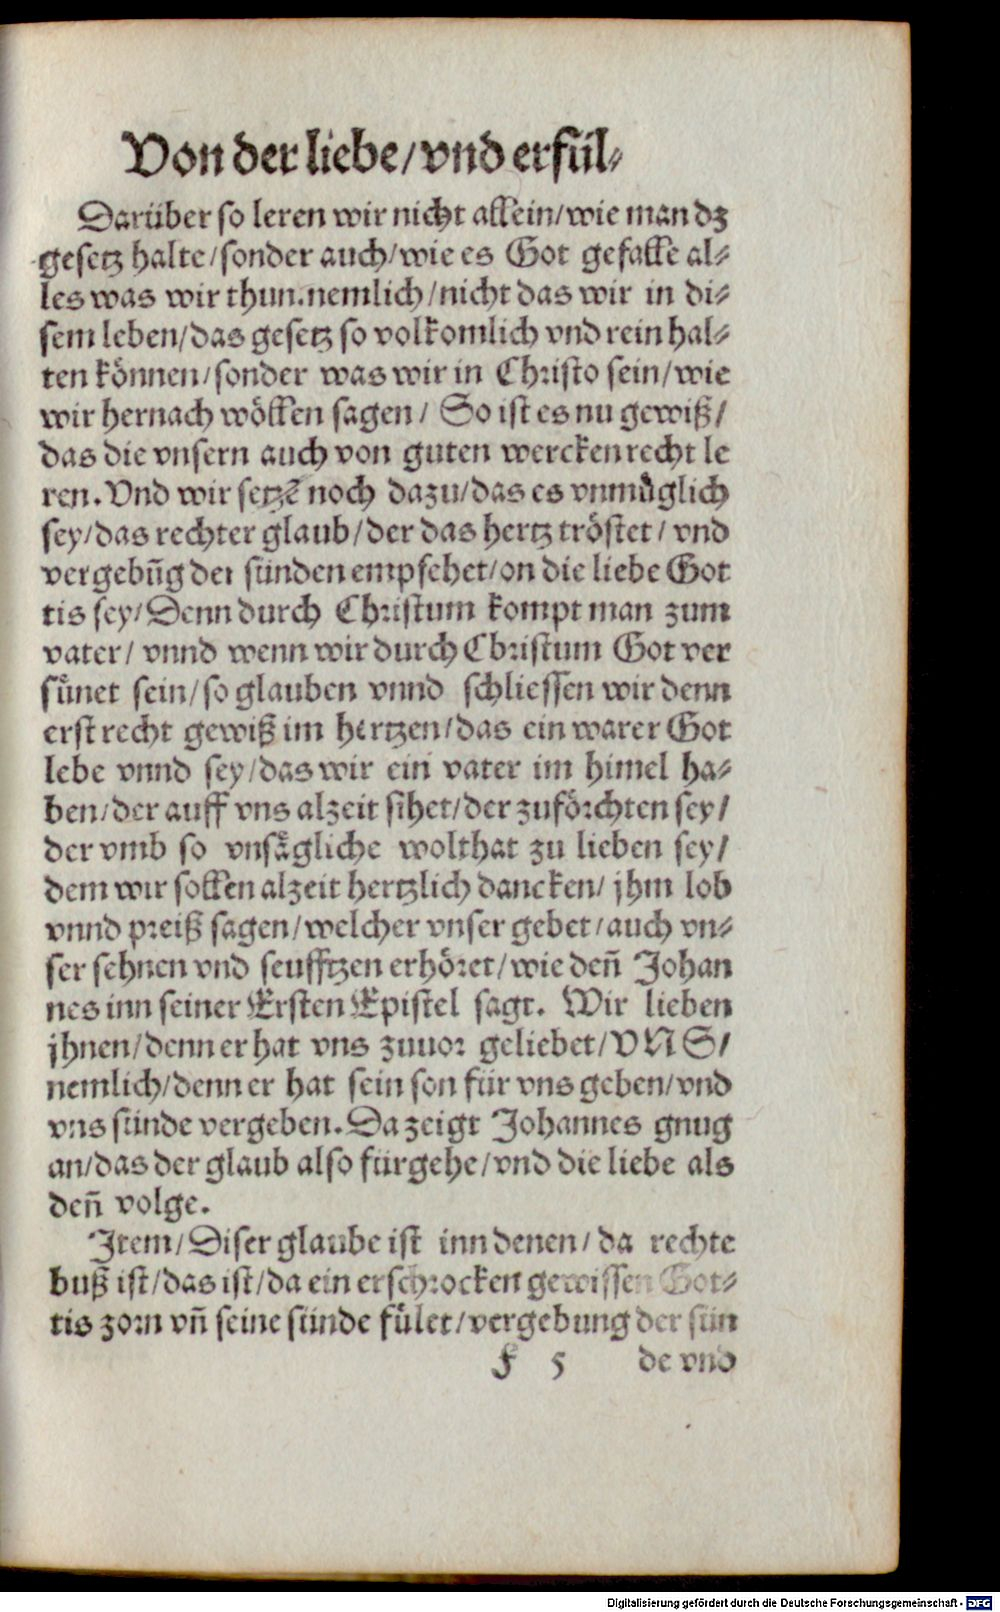 Von der liebe/vnd erfül⸗
Darüber so leren wir nicht allein/wie man dz
gesetz halte/sonder auch/wie es Got gefalle al⸗
les was wir thun.nemlich/nicht das wir in di⸗
sem leben/das gesetz so volkomlich vnd rein hal⸗
ten können/sonder was wir in Christo sein/wie
wir hernach wöllen sagen/ So ist es nu gewiß/
das die vnsern auch von guten wercken recht le
ren. Vnd wir setzē noch dazu/das es vnmüglich
sey/das rechter glaub/der das hertz tröstet/ vnd
vergebūg der sünden empfehet/on die liebe Got
tis sey/Denn durch Christum kompt man zum
vater/ vnnd wenn wir durch Christum Got ver
sünet sein/so glauben vnnd schliessen wir denn
erst recht gewiß im hertzen/das ein warer Got
lebe vnnd sey/das wir ein vater im himel ha⸗
ben/der auff vns alzeit sihet/der zuförchten sey/
der vmb so vnsägliche wolthat zu lieben sey/
dem wir sollen alzeit hertzlich dancken/ jhm lob
vnnd preiß sagen/welcher vnser gebet/auch vn⸗
ser sehnen vnd seufftzen erhöret/wie deñ Johan
nes inn seiner Ersten Epistel sagt. Wir lieben
jhnen/denn er hat vns zuuor geliebet/VNS/
nemlich/denn er hat sein son für vns geben/vnd
vns sünde vergeben. Da zeigt Johannes gnug
an/das der glaub also fürgehe/vnd die liebe als
deñ volge.
Item/Diser glaube ist inn denen/da rechte
buß ist/das ist/da ein erschrocken gewissen Got⸗
tis zorn vñ seine sünde fület/vergebung der sün
F 5 de vnd
Digitalisierung gefördert durch die Deutsche Forschungsgemeinschaft - DFG